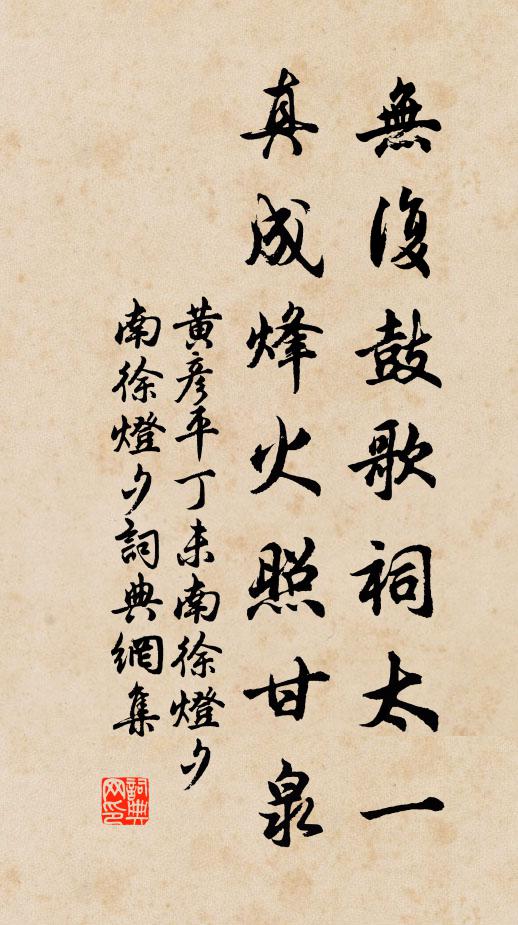 無復鼓歌祠太一
真成烽火照甘泉
黃彦平丁未南徐燈夕
南徐燈夕詞典網集
詞典
网印